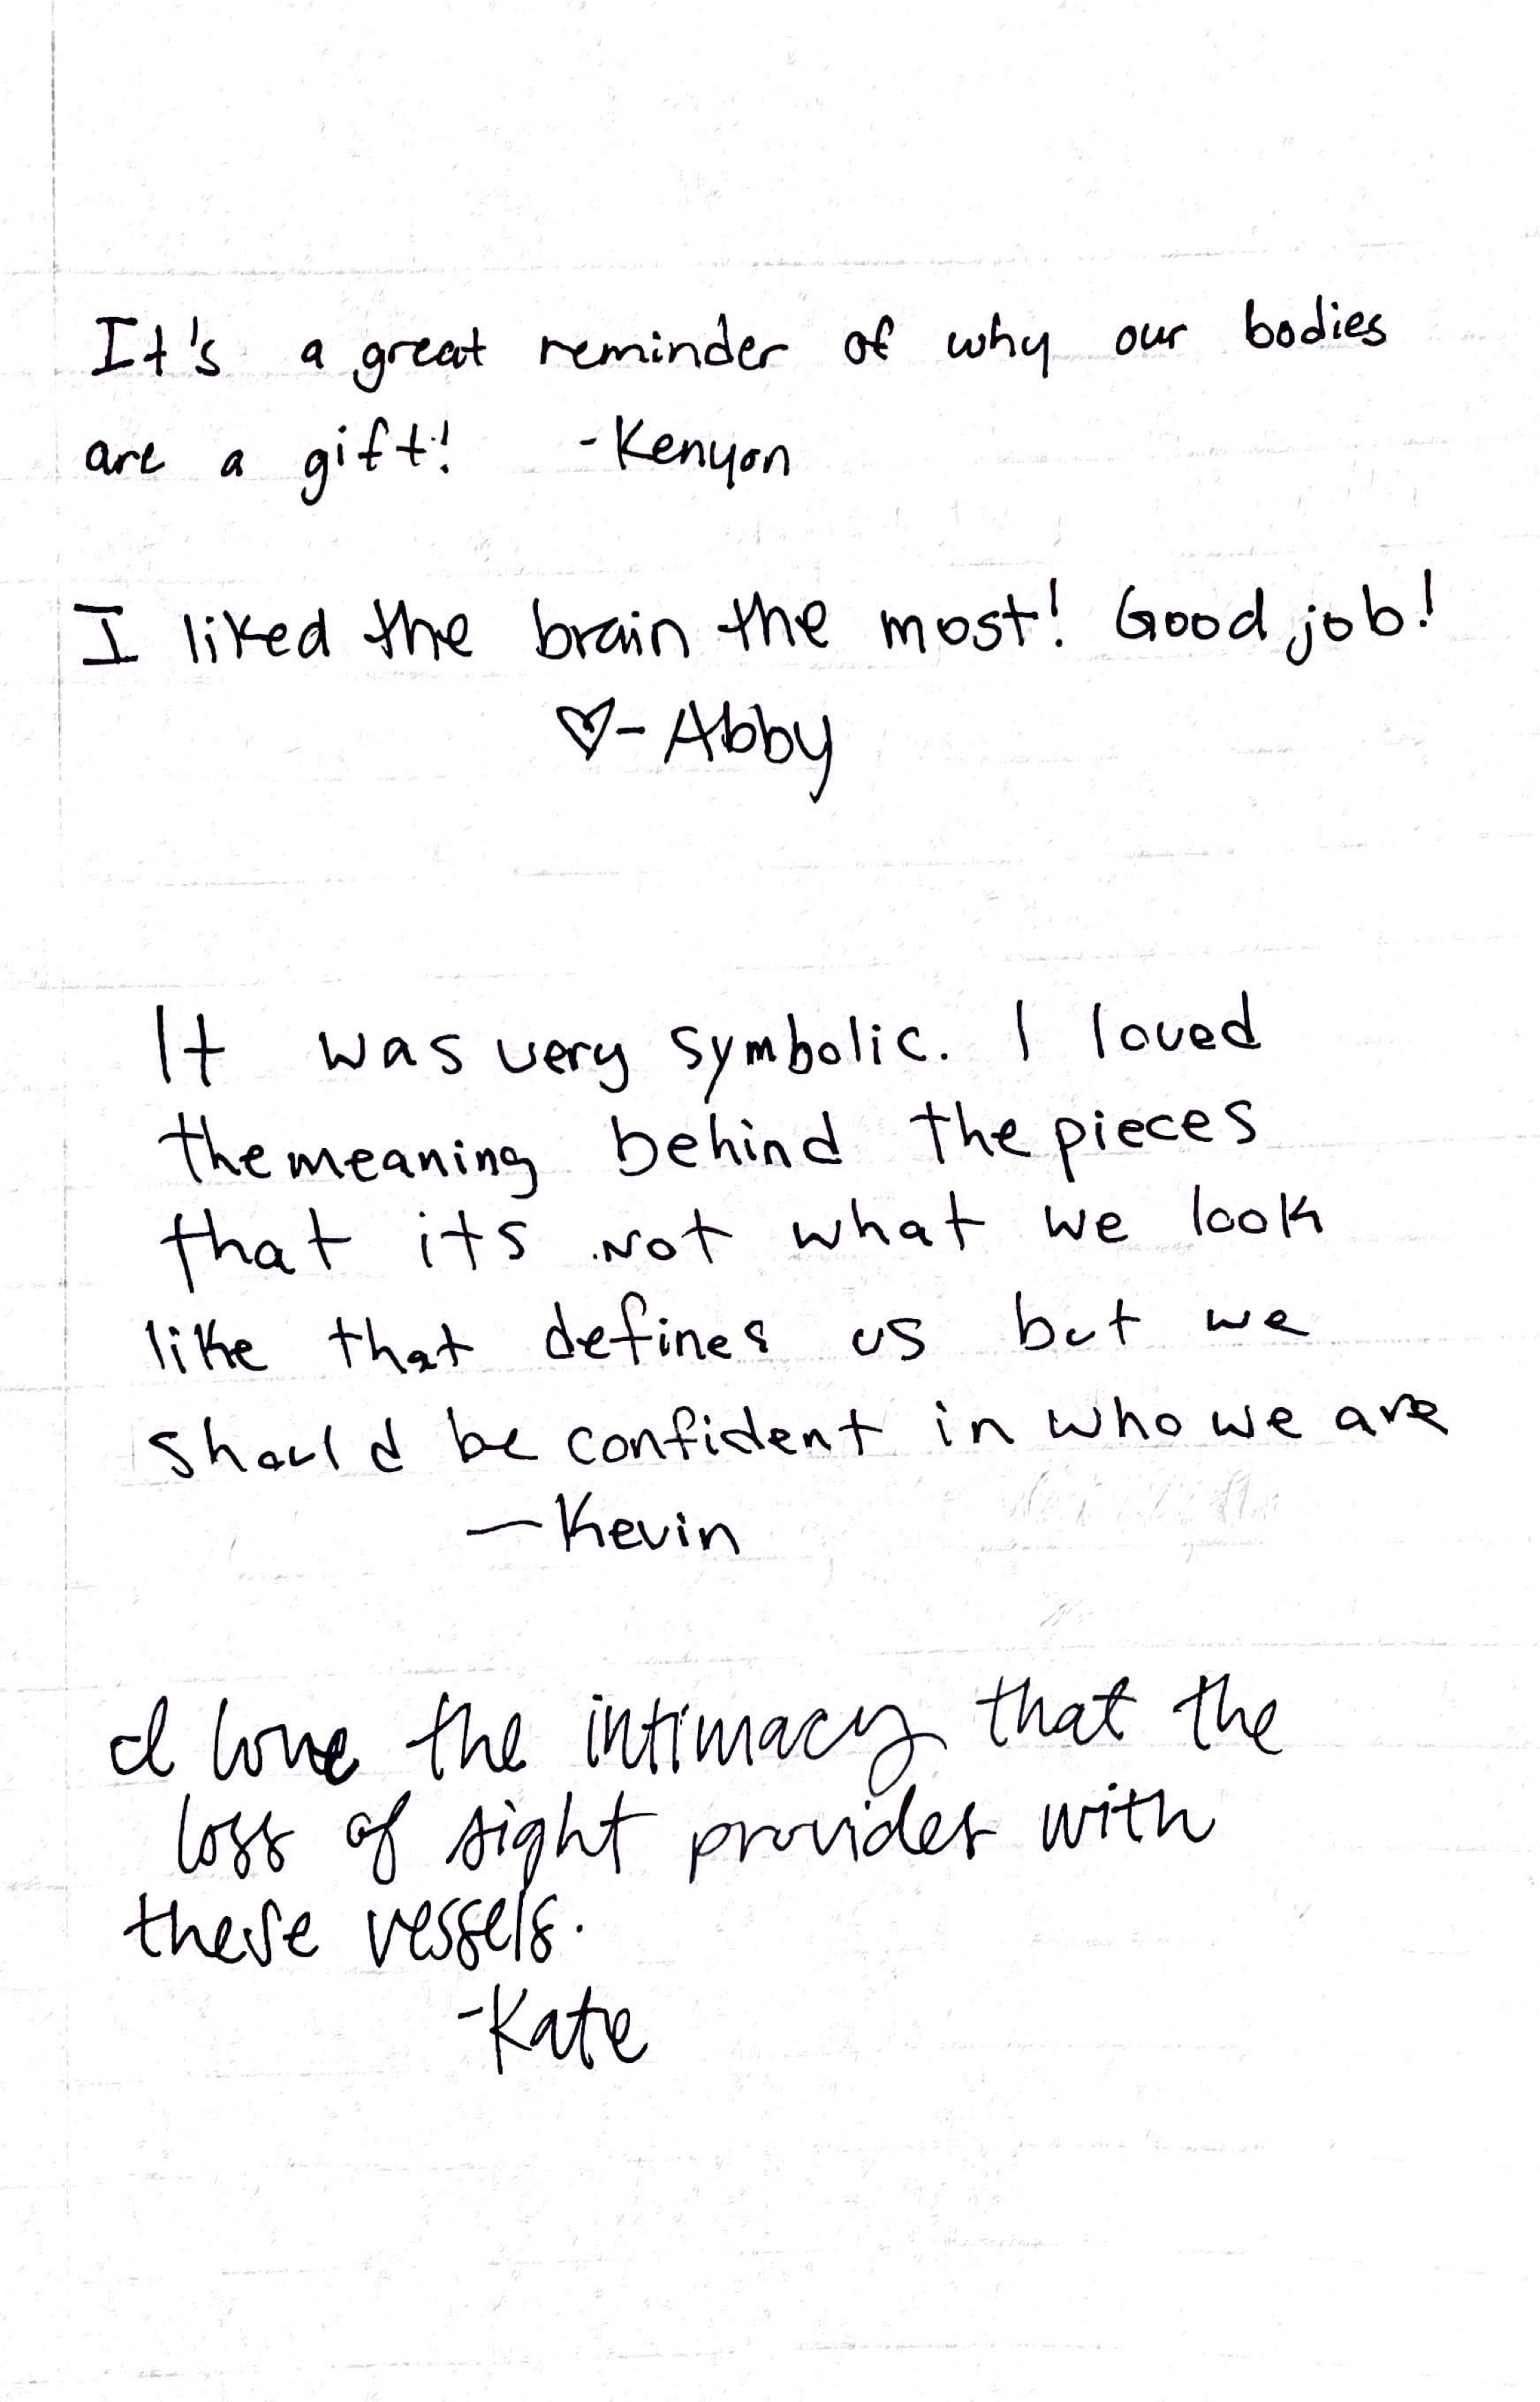 It's a great reminder of why our bodies
are a gift! -Kenyon
I liked the brain the most! Good job!
♡- Abby
It was very symbolic. I loved
the meaning behind the pieces
that its not what we look
like that defines us but we
should be confident in who we are
—Kevin
I love the intimacy that the
loss of sight provides with
these vessels.
-Kate